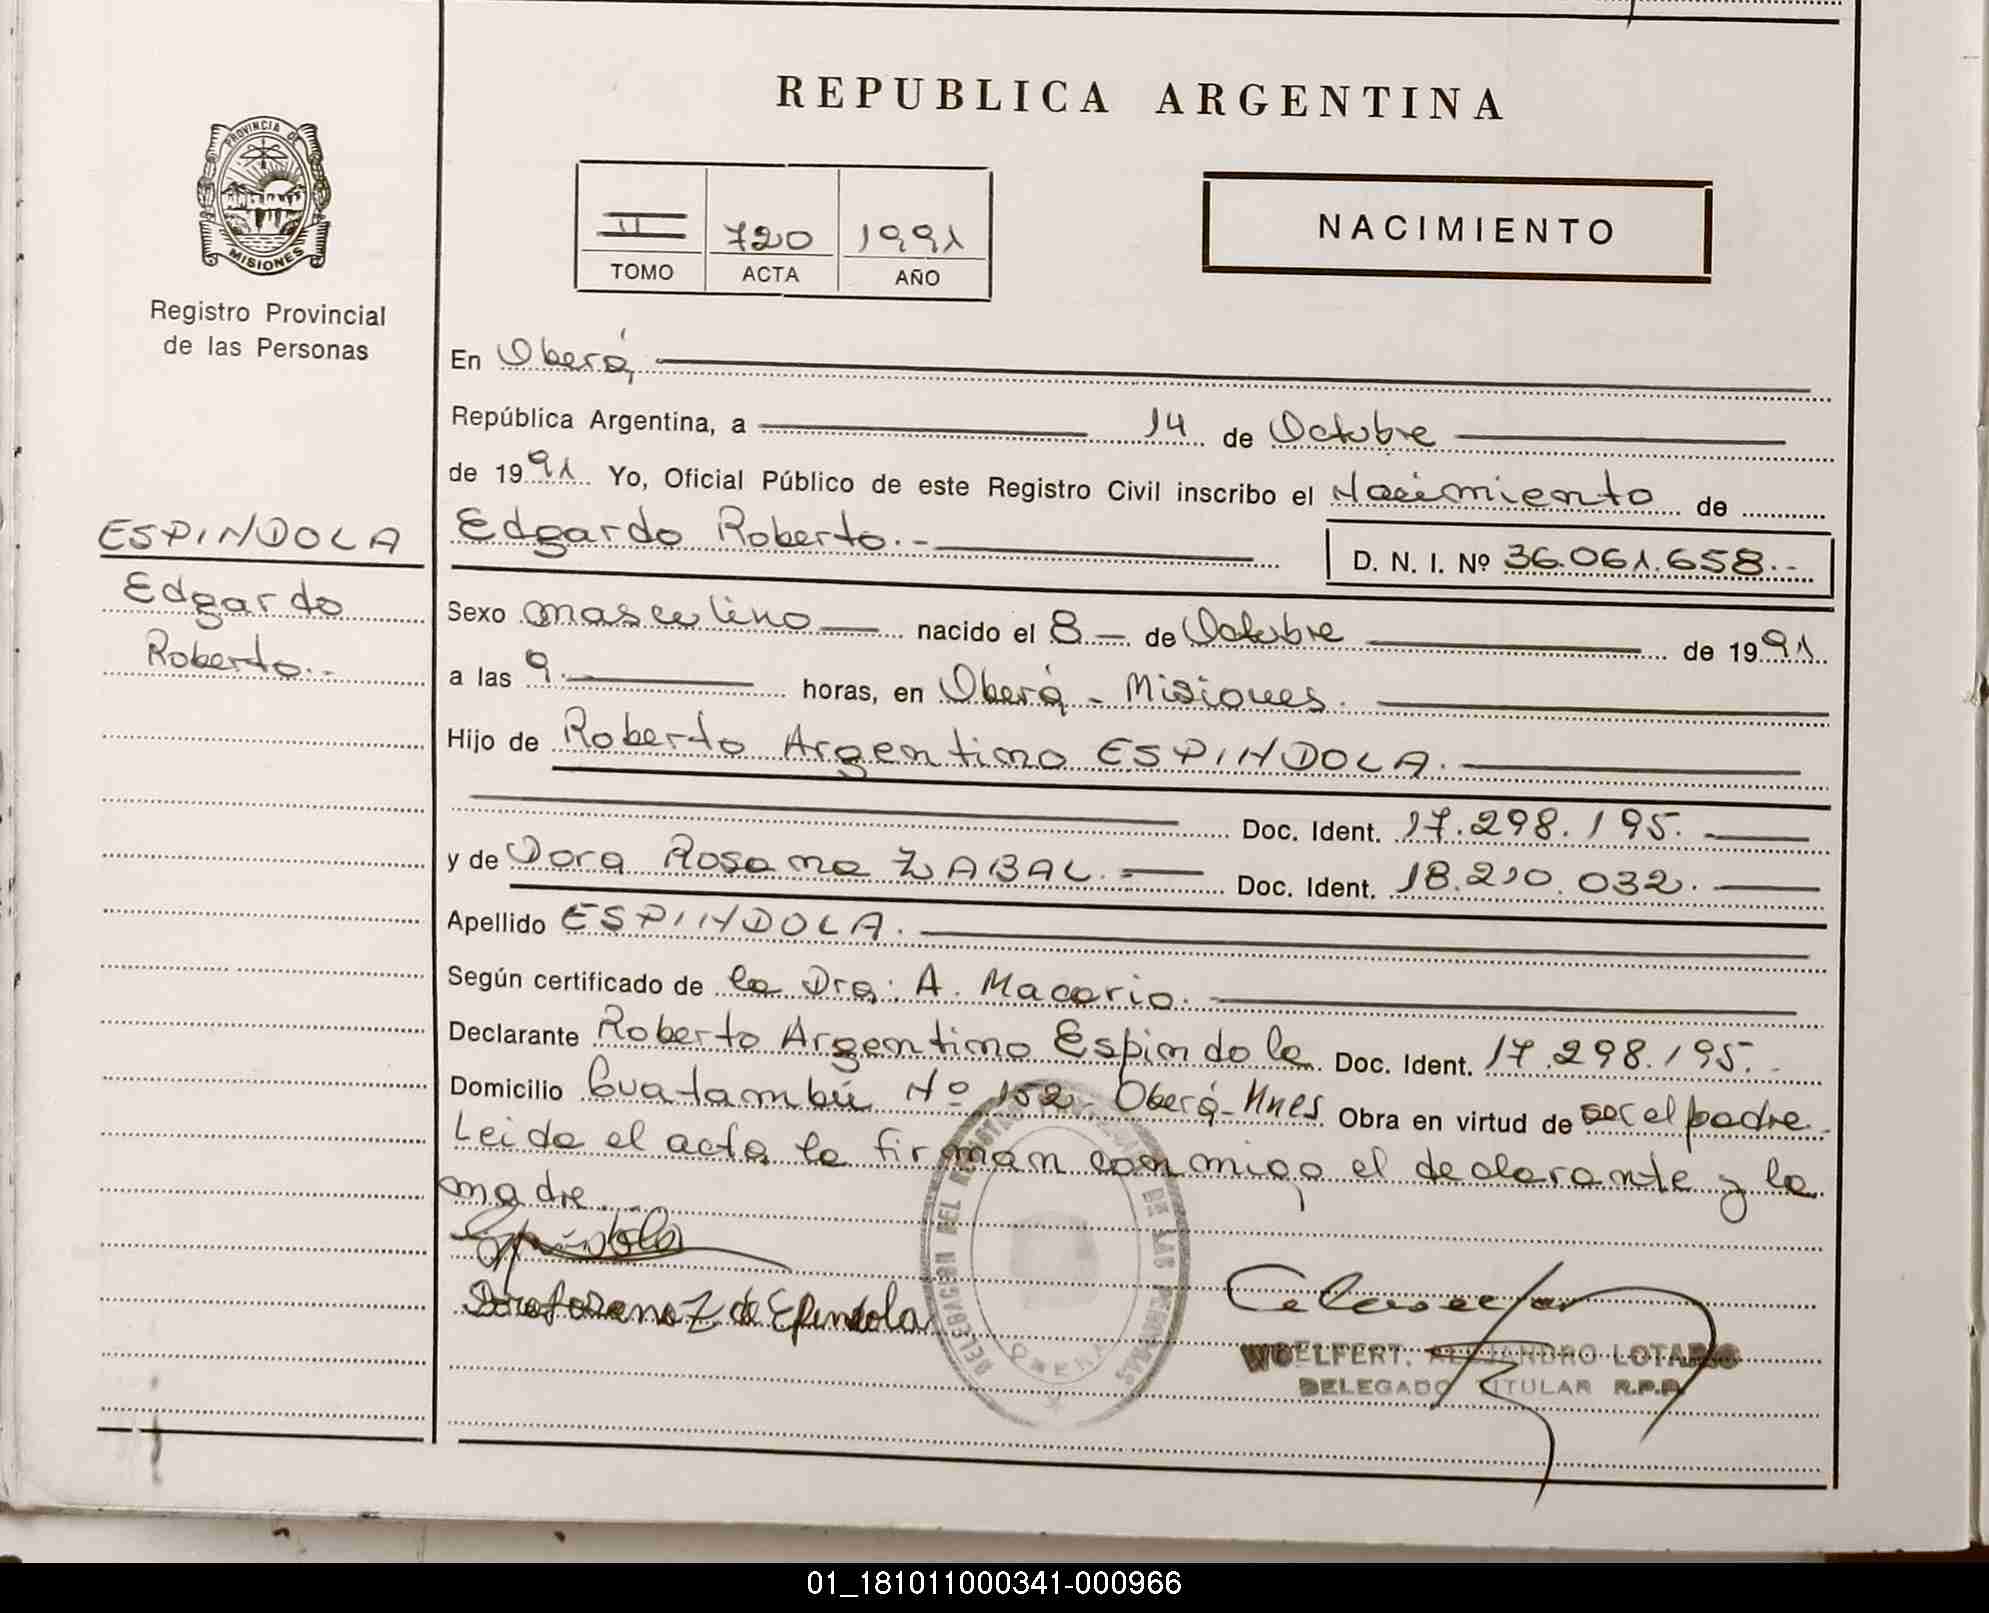 REPUBLICA ARGENTINA
PROVINCIA DE
MISIONES
Registro Provincial
de las Personas
II 720 1991
TOMO ACTA AÑO
NACIMIENTO
En Oberá,
República Argentina, a 14 de Octubre
de 1991 Yo, Oficial Público de este Registro Civil inscribo el Nacimiento de
ESPINDOLA
Edgardo
Roberto.-
Edgardo Roberto.- D. N. I. Nº 36.061.658.-
Sexo masculino nacido el 8 de Octubre de 1991
a las 9. horas, en Oberá - Misiones.
Hijo de Roberto Argentino ESPINDOLA.
Doc. Ident. 17.298.195.
y de Dora Rosana ZABAL. Doc. Ident. 18.210.032.
Apellido ESPINDOLA.
Según certificado de la Dra: A. Macario.
Declarante Roberto Argentino Espindola. Doc. Ident. 17.298.195.-
Domicilio Guatambú Nº 152 - Oberá - Mnes Obra en virtud de ser el padre.
Leida el acta la firman conmigo el declarante y la
madre.
Espíndola
Z de Epindola
DELEGACION DEL DE LAS
OBERA
WOELFERT, ALEJANDRO LOTARIO
DELEGADO TITULAR R.P.P.
01_181011000341-000966